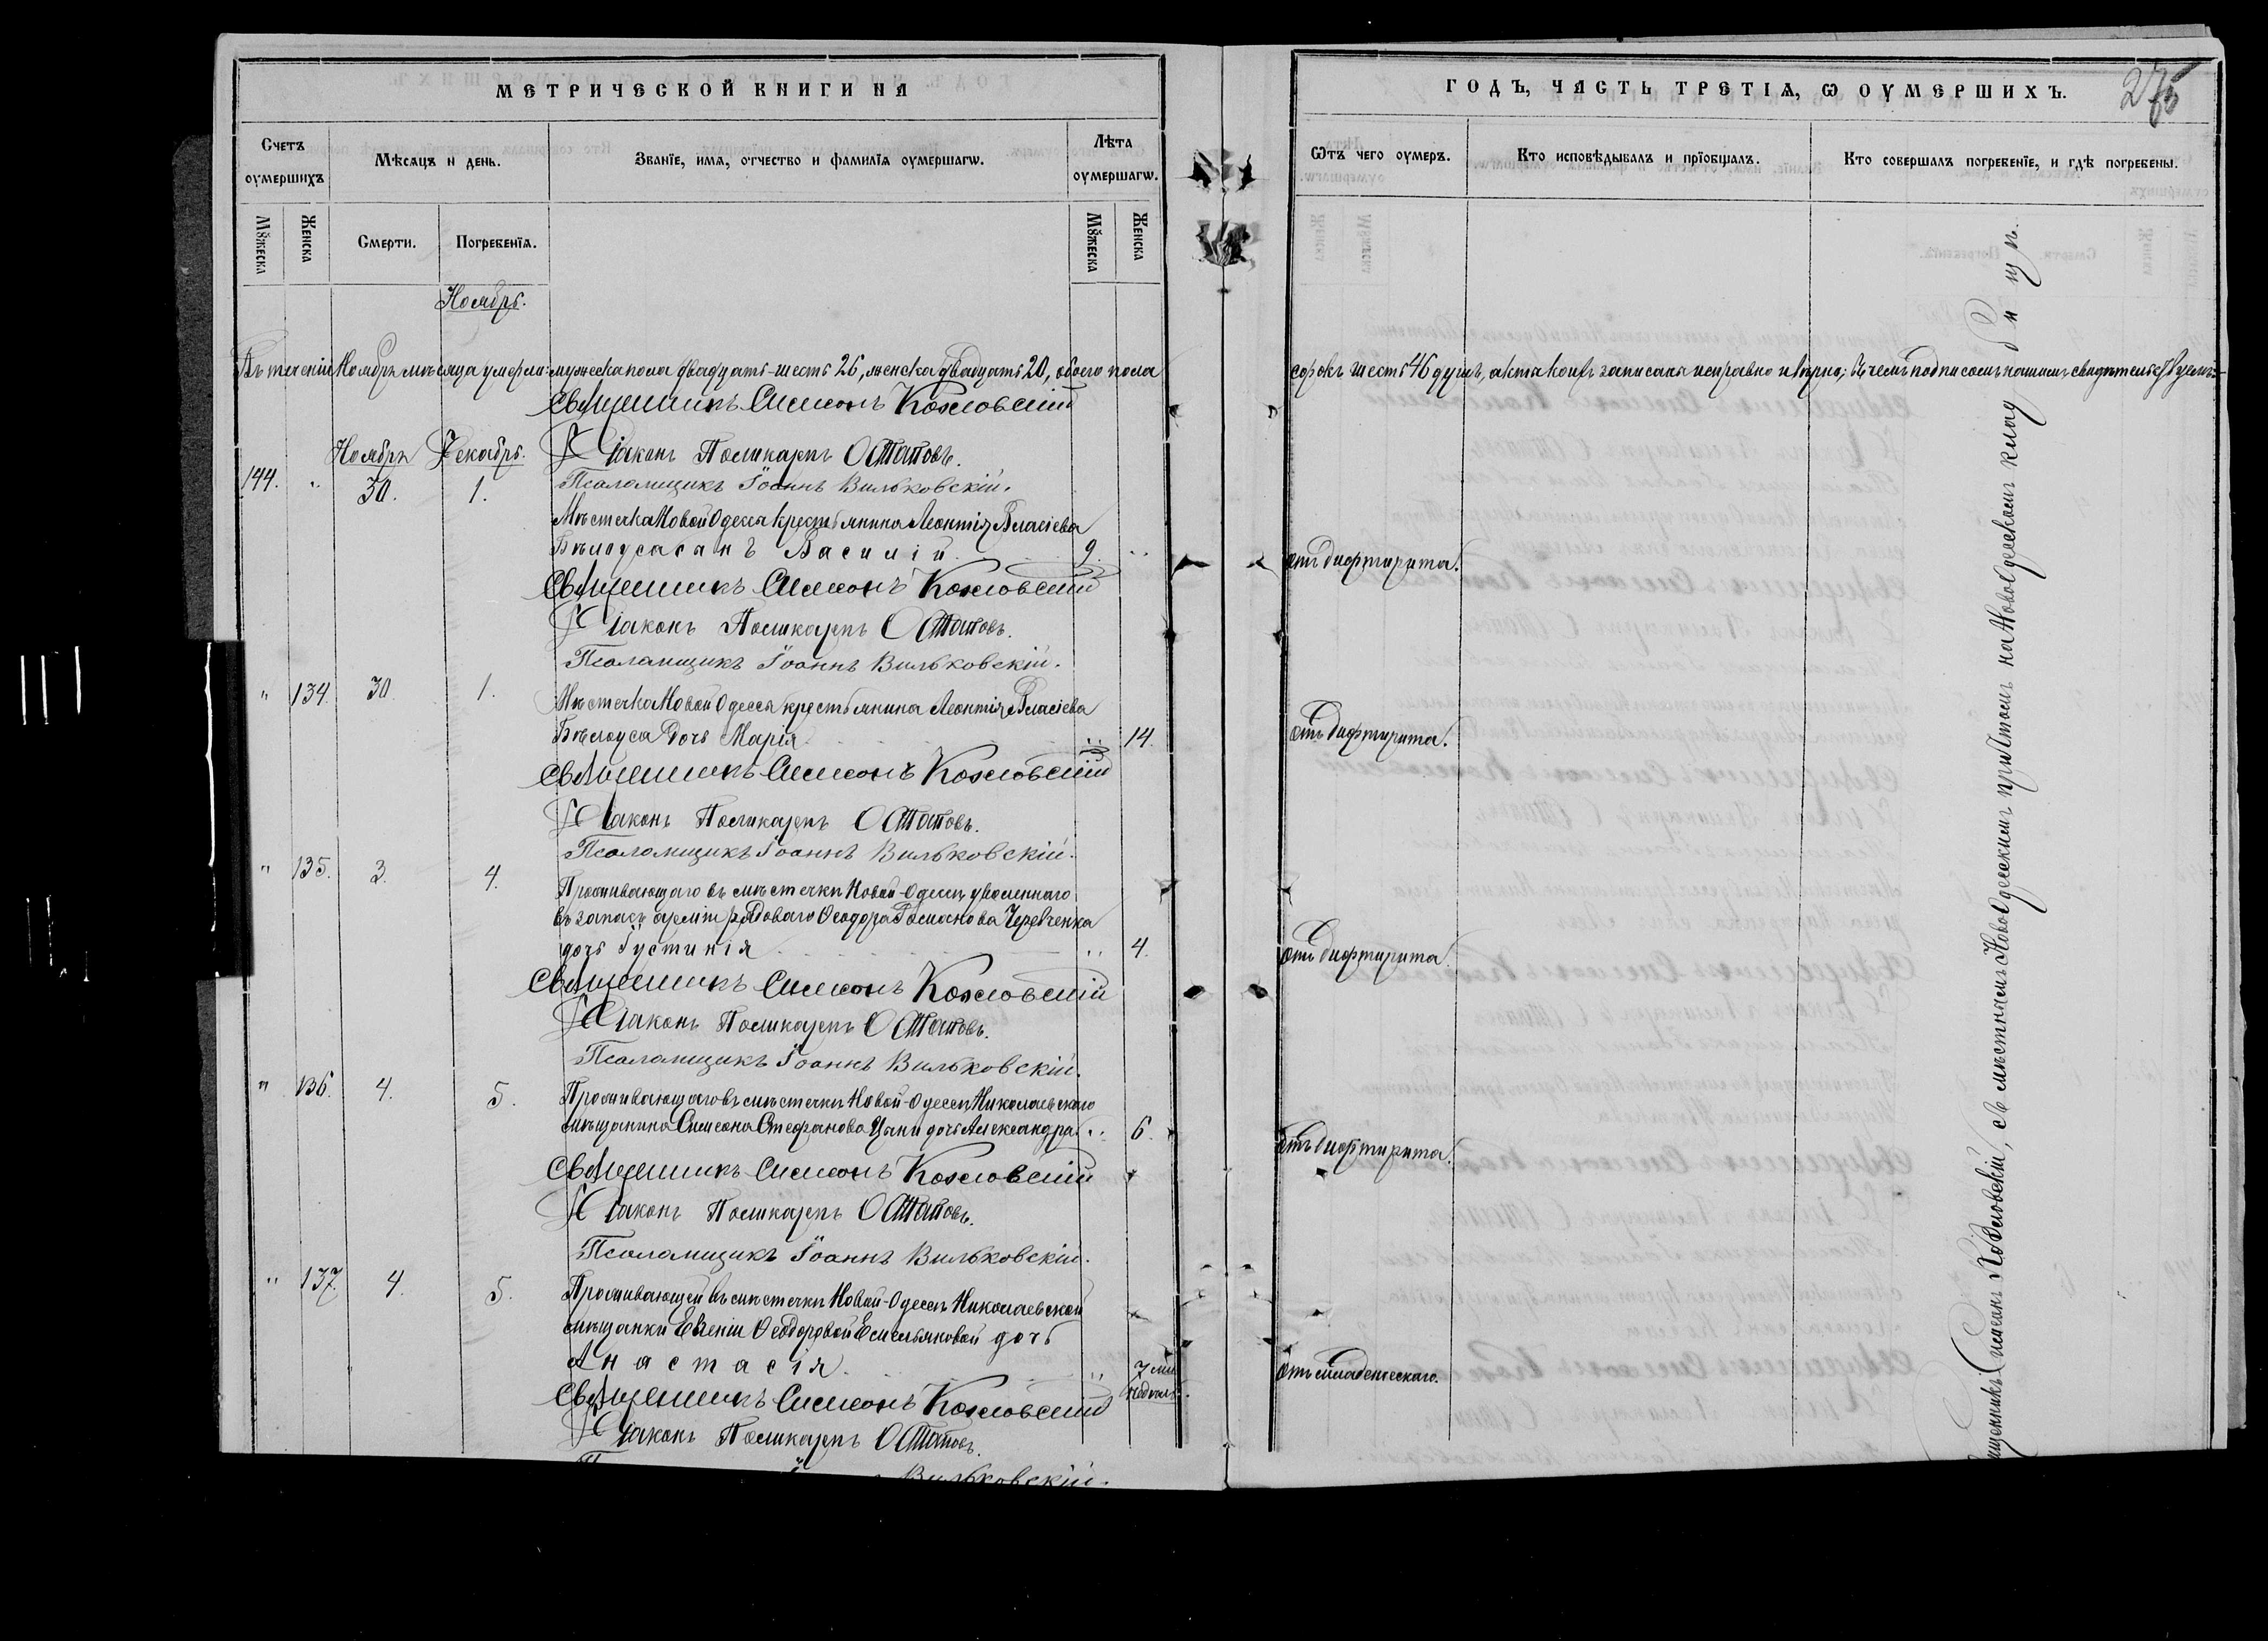 МЕТРИЧЕСКОЙ КНИГИ НА
Счетъ оумершихъ
Мѣсяцъ и день.
Званїе, имѧ, отчество и фамилїѧ оумершагѡ.
Лѣта оумершагѡ.
Мꙋжеска
Женска
Смерти.
Погребенїѧ.
Мꙋжеска
Женска
Ноябрь.
Въ теченіи Ноября мѣсяца умерли: мужеска пола двадцать-шесть 26, женска двадцать 20, обоего пола
Священникъ Симеонъ Козловскій
Діаконъ Поликарпъ Остаповъ.
Псаломщикъ Іоаннъ Вильковскій.
Ноября Декабрь.
144. " 30. 1.
Мѣстечка Новой Одессы крестьянина Леонтія Власіева
Бѣлоуса сынъ Василій 9. "
Священникъ Симеонъ Козловскій
Діаконъ Поликарпъ Остаповъ.
Псаломщикъ Іоаннъ Вильковскій.
" 134. 30. 1. Мѣстечка Новой Одессы крестьянина Леонтія Власіева
Бѣлоуса дочь Марія " 14.
Священникъ Симеонъ Козловскій
Діаконъ Поликарпъ Остаповъ.
Псаломщикъ Іоаннъ Вильковскій.
" 135. 3. 4. Проживающаго въ мѣстечкѣ Новой-Одессѣ уволеннаго
въ запасъ арміи рядоваго Ѳеодора Черевченка
дочь Іустинія " 4.
Священникъ Симеонъ Козловскій
Діаконъ Поликарпъ Остаповъ.
Псаломщикъ Іоаннъ Вильковскій.
" 136. 4. 5. Проживающаго въ мѣстечкѣ Новой-Одессѣ Николаевскаго
мѣщанина Симеона Стефанова дочь Александра " 6.
Священникъ Симеонъ Козловскій
Діаконъ Поликарпъ Остаповъ.
Псаломщикъ Іоаннъ Вильковскій.
" 137. 4. 5. Проживающей въ мѣстечкѣ Новой-Одессѣ Николаевской
мѣщанки Евгеніи Ѳеодоровой Емельяновой дочь
Анастасія " 7 ми
недѣль.
Священникъ Симеонъ Козловскій
Діаконъ Поликарпъ Остаповъ.
Вильковскій.
ГОДЪ, ЧАСТЬ ТРЕТІѦ, Ѡ ОУМЕРШИХЪ.
275
Ѿтъ чего оумеръ.
Кто исповѣдывалъ и прїобщалъ.
Кто совершалъ погребенїе, и гдѣ погребены.
сорокъ шесть 46 душъ, акта коихъ записаны исправно и вѣрно; въ чемъ подписомъ нашимъ свидѣтельствуемъ:
отъ дифтирита.
отъ дифтирита.
отъ дифтирита.
отъ дифтирита.
отъ младенческаго.
Симеонъ Козловскій, съ мѣстнымъ Новоодесскимъ причтомъ на Новоодесскомъ кладбищѣ.